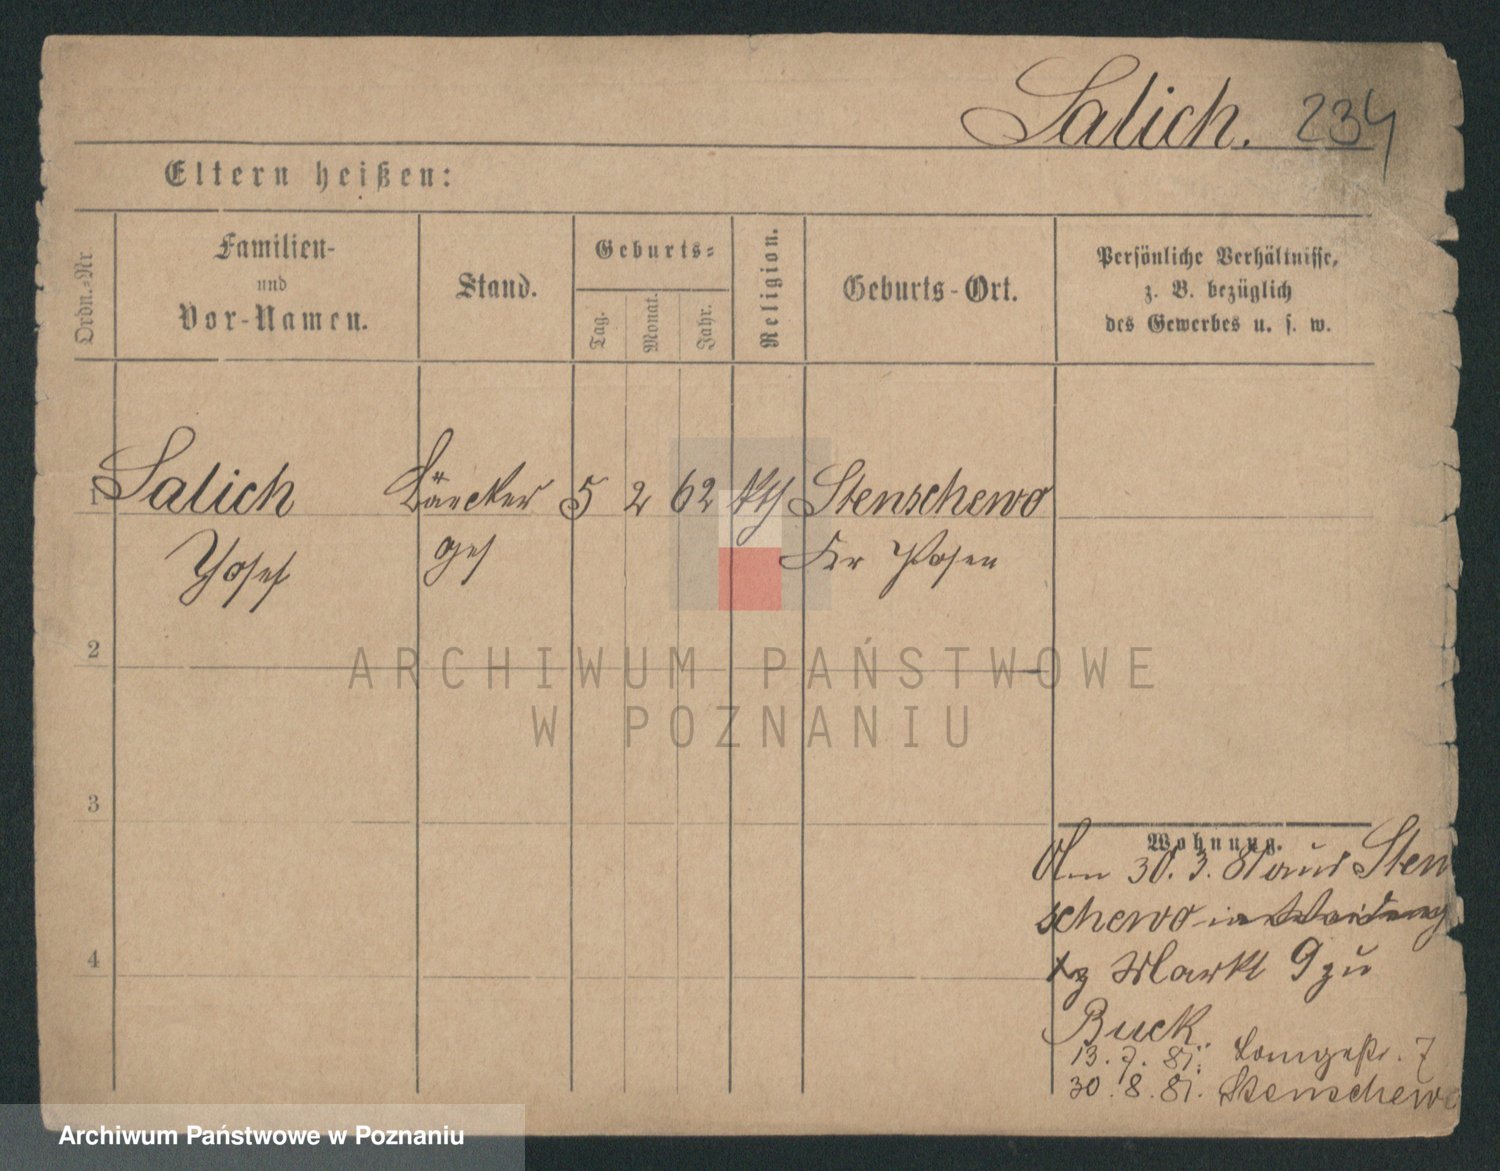 Salich. 234
Eltern heißen:
Ordn.-Nr
Familien-
und
Vor-Namen.
Stand.
Geburts-
Tag.
Monat.
Jahr.
Religion.
Geburts-Ort.
Persönliche Verhältnisse,
z. B. bezüglich
des Gewerbes u. s. w.
1 Salich Bäecker 5 2 62 kth Stenschewo
Josef ges Kr Posen
2
ARCHIWUM PAŃSTWOWE
W POZNANIU
3
Wohnung.
Am 30. 3. 81 aus Sten
schewo in
Markt 9 zu
4
Buck.
13. 7. 81. Langestr. 7
30. 8. 81. Stenschewo
Archiwum Państwowe w Poznaniu